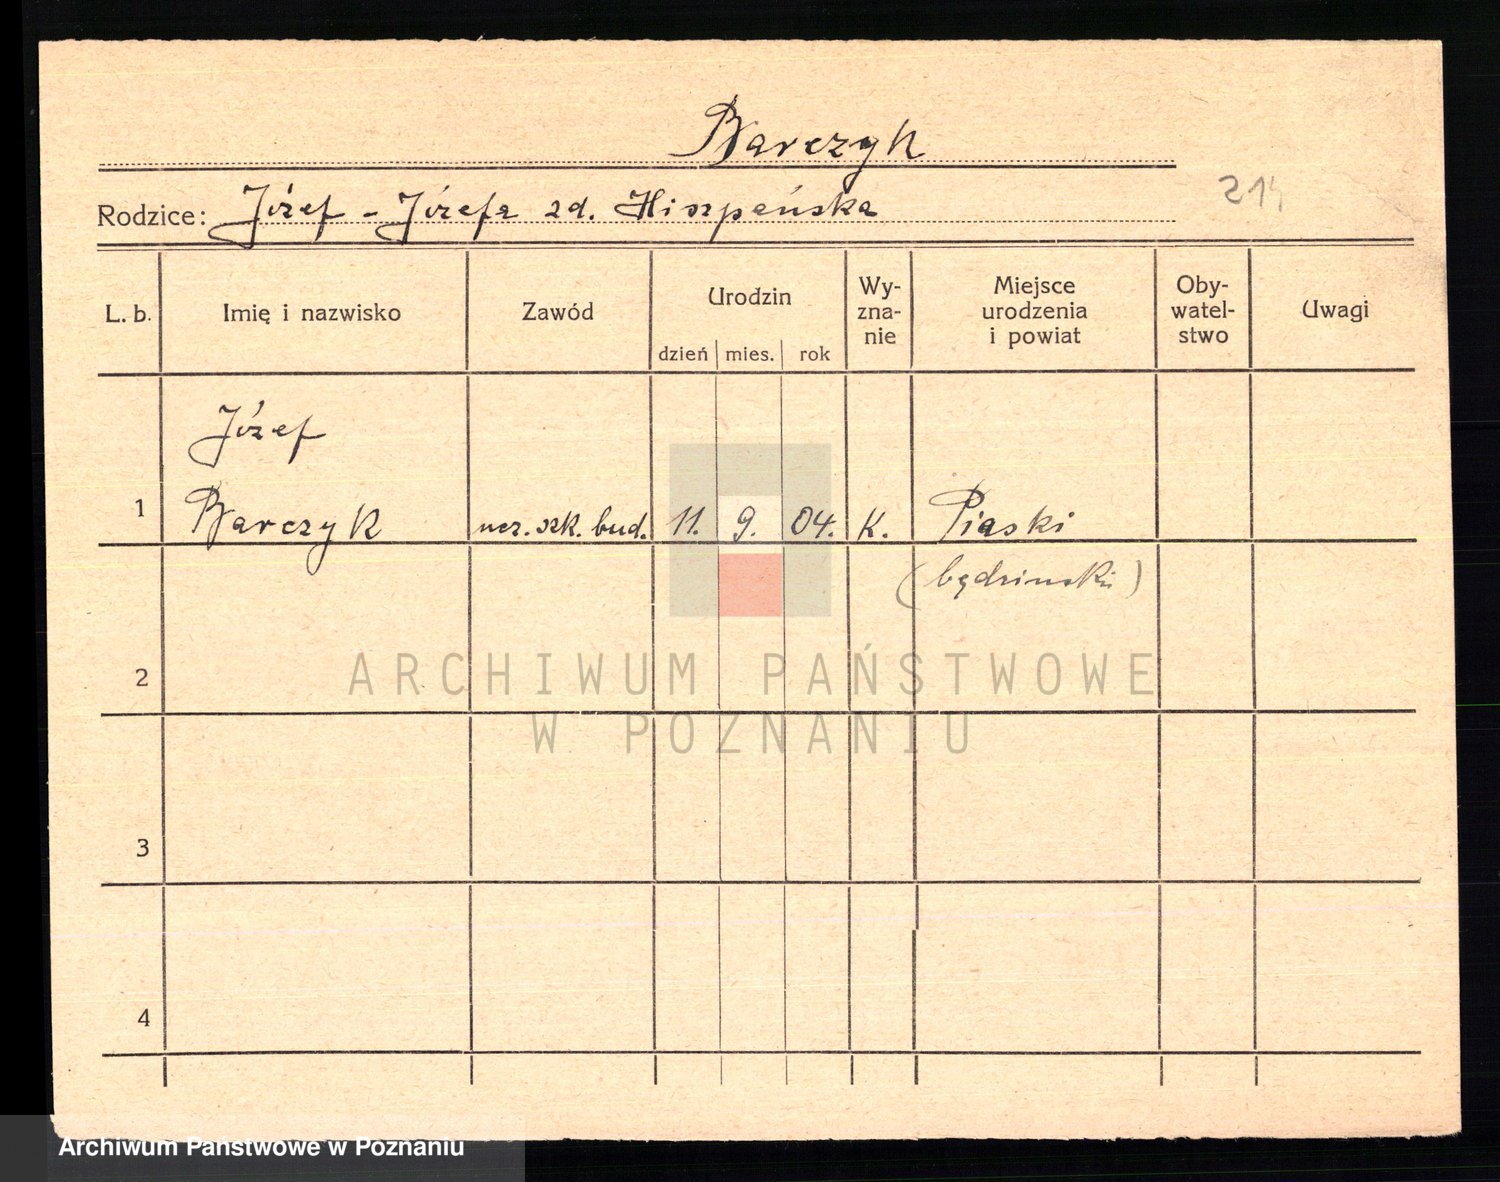 Barczyk
Rodzice: Józef - Józefa zd. Hiszpańska
214
L. b.
Imię i nazwisko
Zawód
Urodzin
dzień mies. rok
Wy-
zna-
nie
Miejsce
urodzenia
i powiat
Oby-
watel-
stwo
Uwagi
Józef
1 Barczyk ucz. szk. bud. 11. 9. 04. K. Piaski
(będzinski)
2
ARCHIWUM PAŃSTWOWE
W POZNANIU
3
4
Archiwum Państwowe w Poznaniu